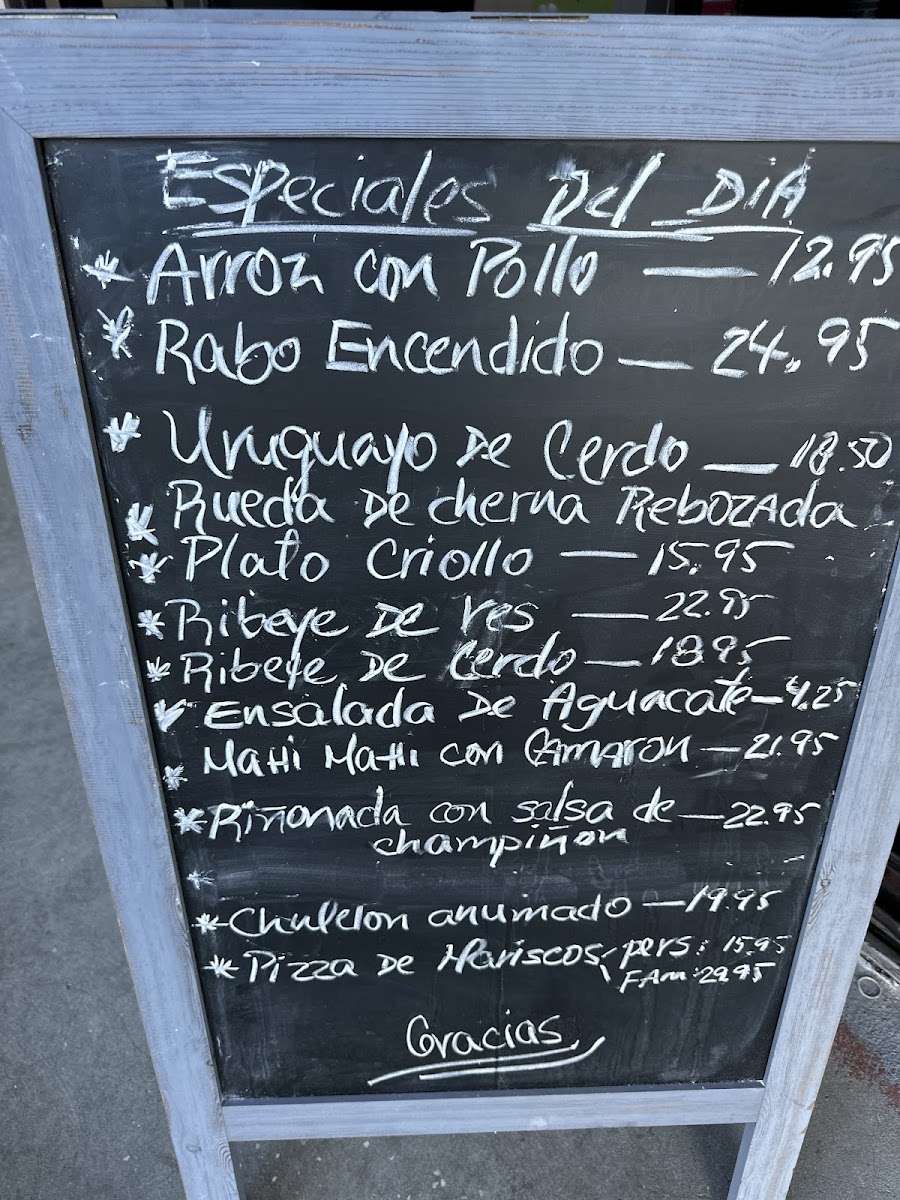 Especiales Del DIA
* Arroz con Pollo — 12.95
* Rabo Encendido — 24.95
* Uruguayo De Cerdo — 18.50
* Rueda De cherna Rebozada -
* Plato Criollo — 15.95
* Ribeye De res — 22.95
* Ribeye De Cerdo — 18.95
* Ensalada De Aguacate — 4.25
* MaHi MaHi con Camaron — 21.95
* Riñonada con salsa de — 22.95
champiñon
* Chuleton anumado — 19.95
* Pizza De Mariscos pers: 15.95
FAm: 29.95
Gracias